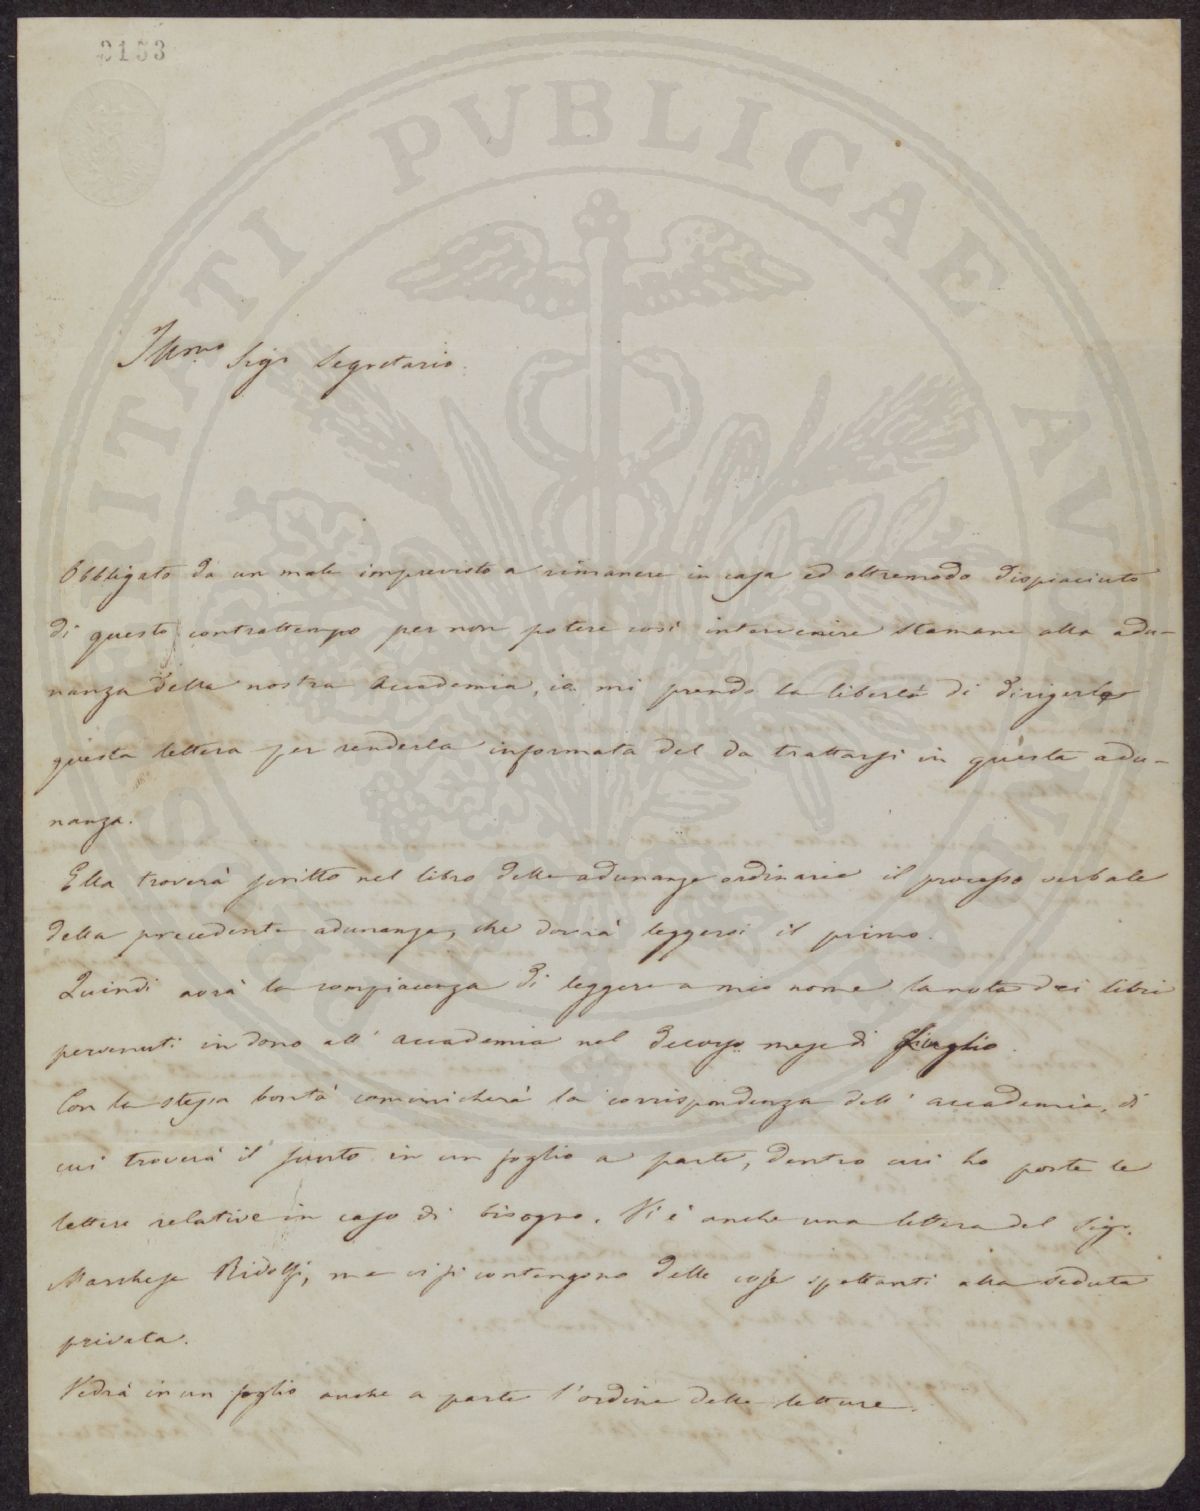 2153
Illmo Sigr Segretario.
Obbligato da un male imprevisto a rimanere in casa ed oltremodo dispiaciuto
di questo contrattempo per non potere così intervenire stamane alla adu-
nanza della nostra Accademia, io mi prendo la libertà di dirigerle
questa lettera per renderla informata del da trattarsi in questa adu-
nanza.
Ella troverà scritto nel libro delle adunanze ordinarie il processo verbale
della precedente adunanza, che dovrà leggersi il primo.
Quindi avrà la compiacenza di leggere a mio nome la nota dei libri
pervenuti in dono all' accademia nel decorso mese di Giuglio.
Con la stessa bontà comunicherà la corrispondenza dell' accademia, di
cui troverà il sunto in un foglio a parte, dentro cui ho poste le
lettere relative in caso di bisogno. Vi è anche una lettera del Sigr.
Marchese Ridolfi, ma vi si contengono delle cose spettanti alla seduta
privata.
Vedrà in un foglio anche a parte l'ordine delle letture.